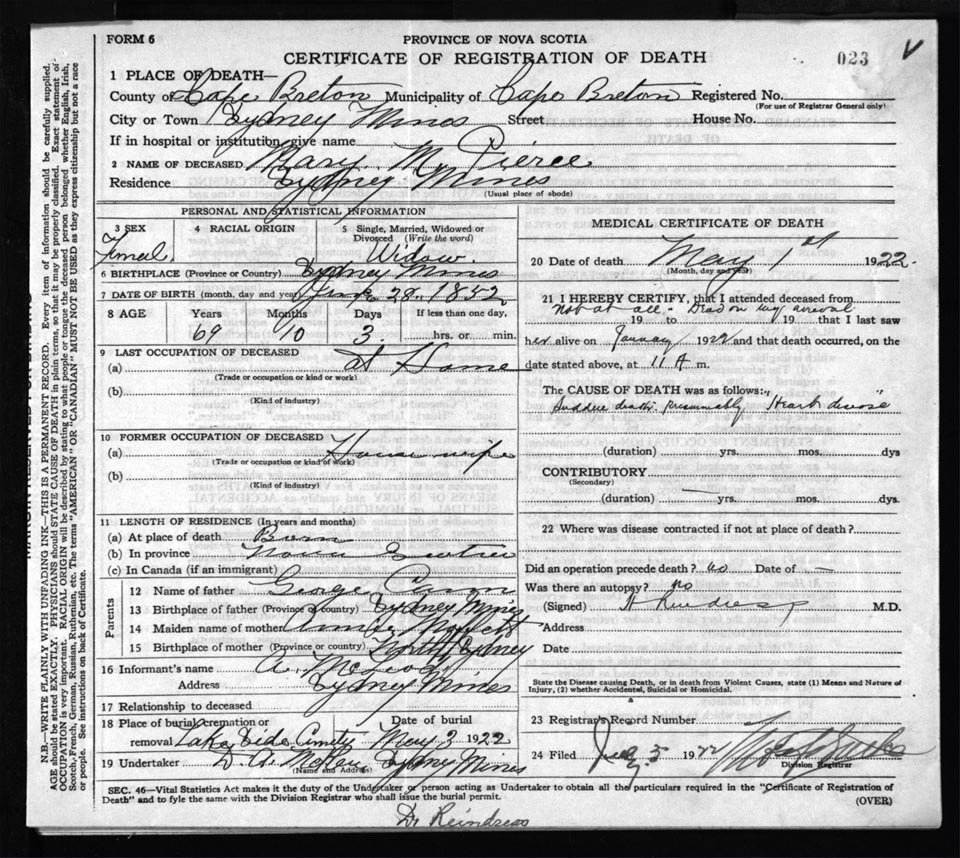 FORM 6
PROVINCE OF NOVA SCOTIA
CERTIFICATE OF REGISTRATION OF DEATH
023
V
1 PLACE OF DEATH—
County of Cape Breton Municipality of Cape Breton Registered No.
(For use of Registrar General only)
City or Town Sydney Mines Street House No.
If in hospital or institution, give name
2 NAME OF DECEASED Mary M. Pierce
Residence Sydney Mines
(Usual place of abode)
PERSONAL AND STATISTICAL INFORMATION
3 SEX 4 RACIAL ORIGIN 5 Single, Married, Widowed or Divorced (Write the word)
Femal. Widow.
6 BIRTHPLACE (Province or Country) Sydney Mines
7 DATE OF BIRTH (month, day and year) 28. 1852
8 AGE Years Months Days If less than one day,
69 10 3. hrs. or min.
9 LAST OCCUPATION OF DECEASED
(a) at Home
(Trade or occupation or kind or work)
(b)
(Kind of industry)
10 FORMER OCCUPATION OF DECEASED
(a) House wife
(Trade or occupation or kind of work)
(b)
(Kind of industry)
11 LENGTH OF RESIDENCE (In years and months)
(a) At place of death Born
(b) In province Nova Scotia
(c) In Canada (if an immigrant)
Parents
12 Name of father George
13 Birthplace of father (Province or country) Sydney Mines
14 Maiden name of mother
15 Birthplace of mother (Province or country) North Sydney
16 Informant's name A. McLeod
Address Sydney Mines
17 Relationship to deceased
18 Place of burial, cremation or removal Lake Side Cmty Date of burial May 3 1922
19 Undertaker D. A. Sydney Mines
(Name and Address)
MEDICAL CERTIFICATE OF DEATH
20 Date of death May 1st 1922.
(Month, day and year)
21 I HEREBY CERTIFY, that I attended deceased from
Not at all - Dead on my arrival
19 to 19 that I last saw
her alive on January 1922 and that death occurred, on the
date stated above, at 11 A m.
The CAUSE OF DEATH was as follows:
Sudden death: presumably "Heart disease"
(duration) yrs. mos. dys
CONTRIBUTORY
(Secondary)
(duration) — yrs. mos. dys.
22 Where was disease contracted if not at place of death?
Did an operation precede death? No Date of —
Was there an autopsy? No
(Signed) M.D.
Address
Date
State the Disease causing Death, or in death from Violent Causes, state (1) Means and Nature of
Injury, (2) whether Accidental, Suicidal or Homicidal.
23 Registrar's Record Number
24 Filed 5 1922
Division Registrar
SEC. 46—Vital Statistics Act makes it the duty of the Undertaker or person acting as Undertaker to obtain all the particulars required in the "Certificate of Registration of
Death" and to fyle the same with the Division Registrar who shall issue the burial permit.
(OVER)
Dr Reindress
N.B.—WRITE PLAINLY WITH UNFADING INK.—THIS IS A PERMANENT RECORD. Every item of information should be carefully supplied.
AGE should be stated EXACTLY. PHYSICIANS should STATE CAUSE OF DEATH in plain terms, so that it may be properly classified. Exact statement of
OCCUPATION is very important. RACIAL ORIGIN will be described by stating to what people or tongue the deceased person belonged whether English, Irish,
Scotch, French, German, Russian, Ruthenian, etc. The terms "AMERICAN" OR "CANADIAN" MUST NOT BE USED as they express citizenship but not a race
or people. See instructions on back of Certificate.